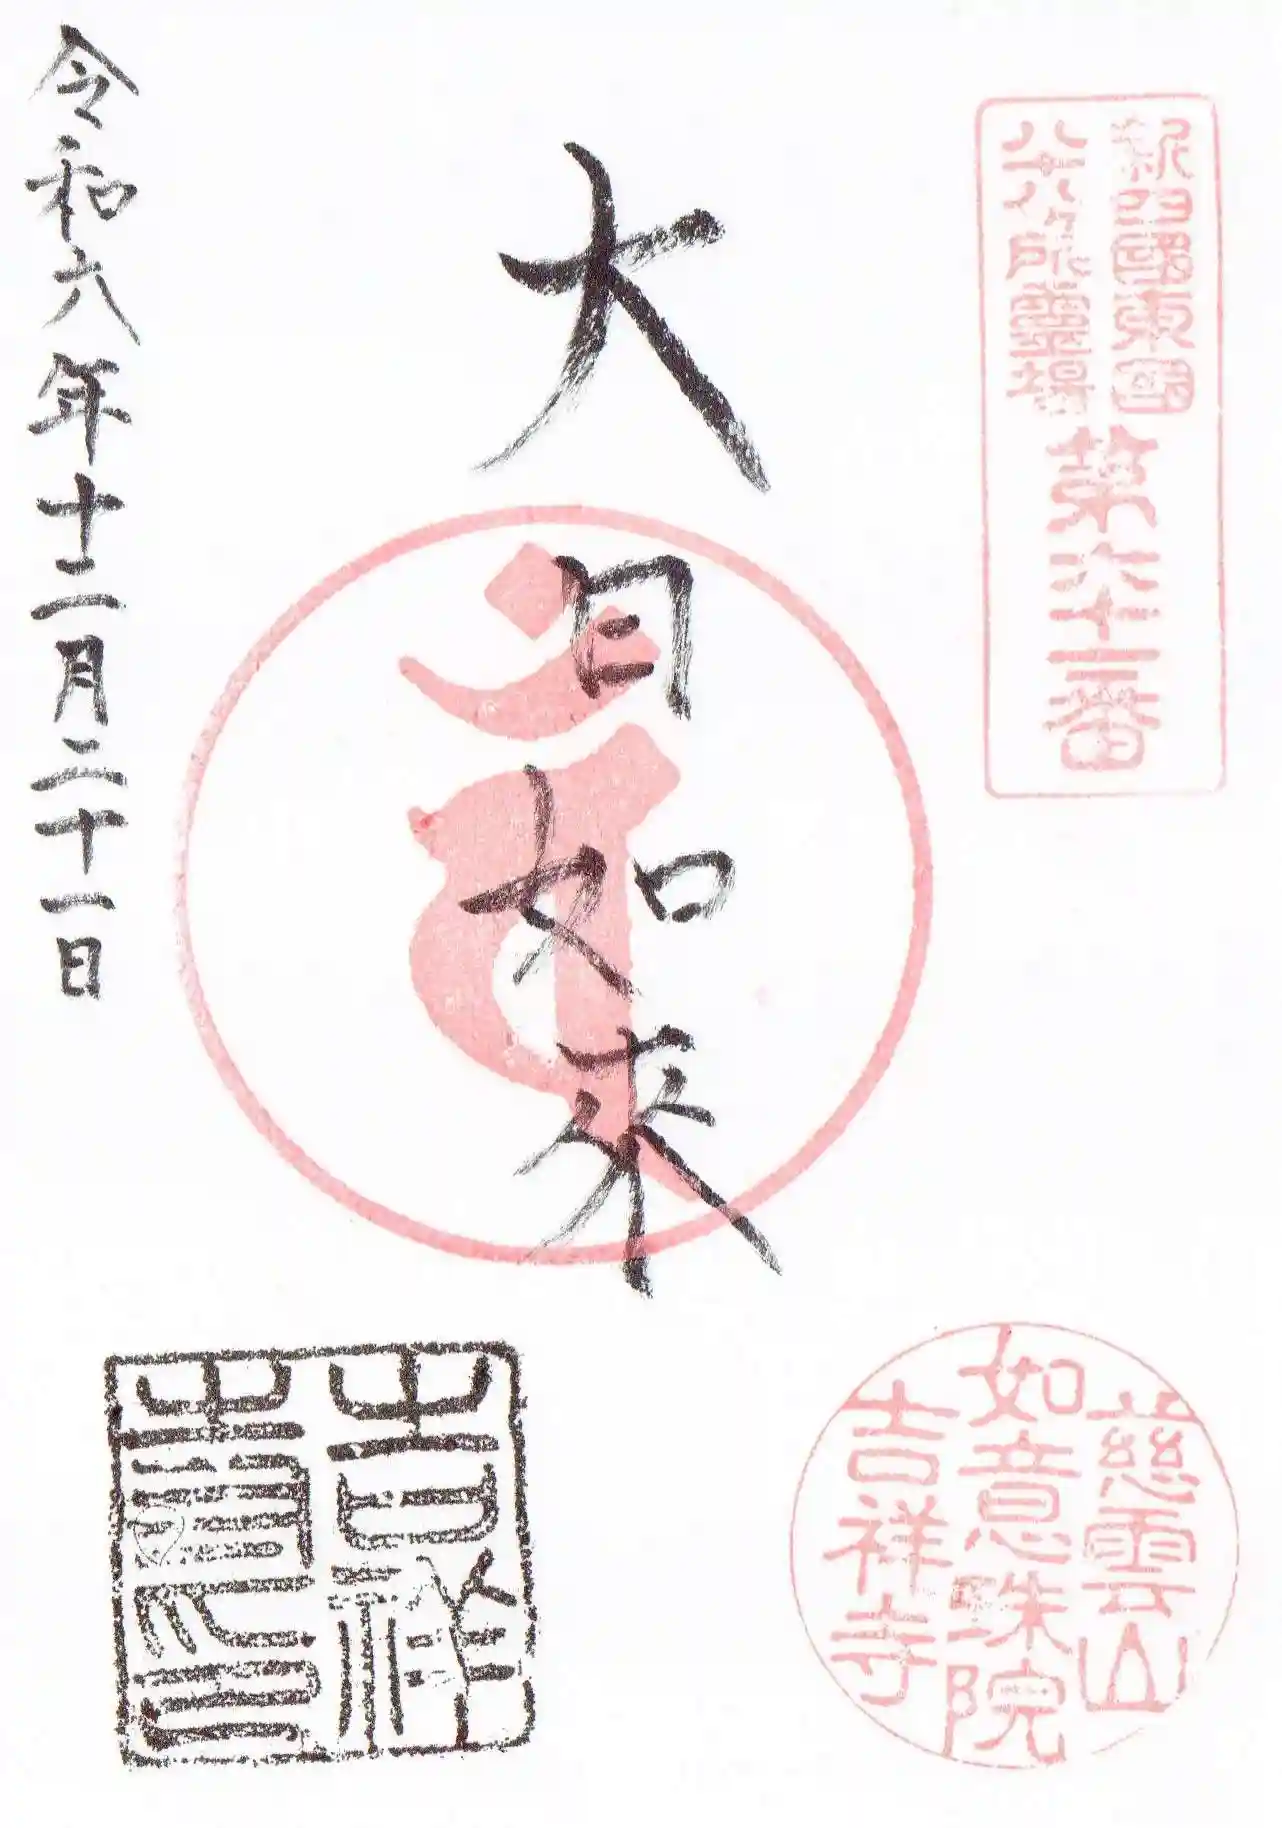 新四國東國
八十八ヶ所靈場
第六十三番
大日如来
令和六年十二月二十一日
慈雲山
如意珠院
吉祥寺
吉祥
寺印